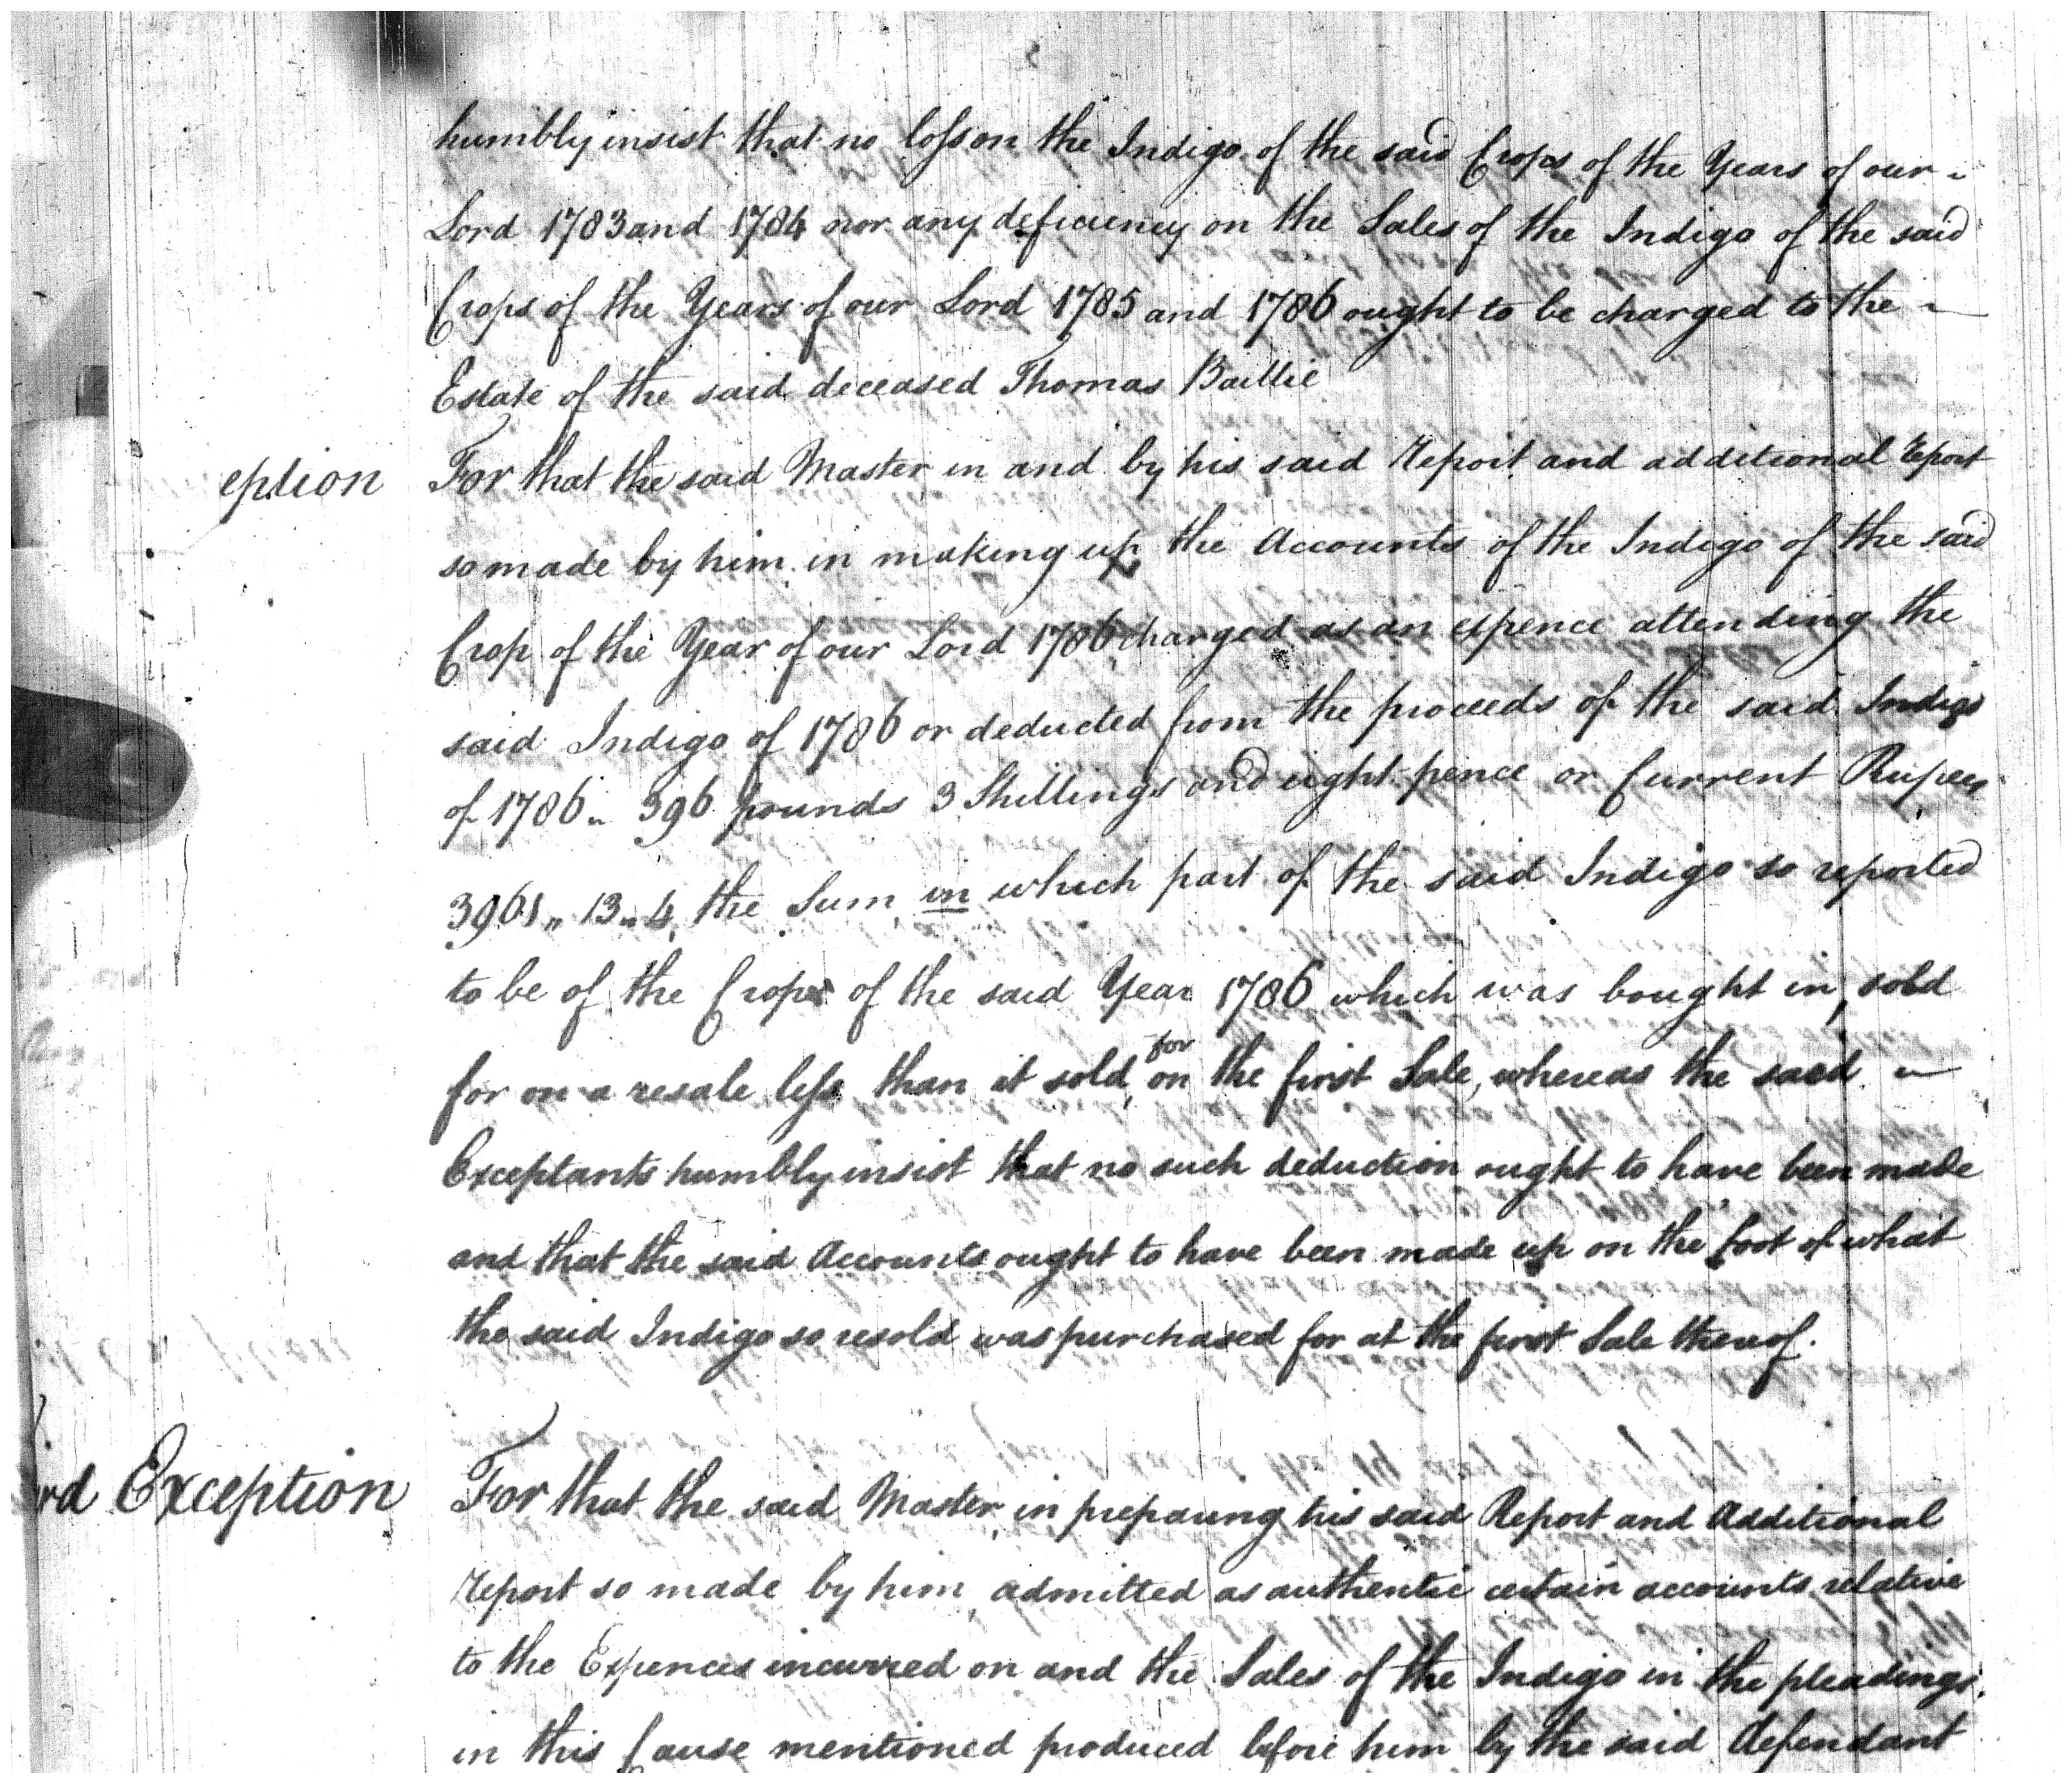 humbly insist that no loss on the Indigo of the said Crops of the Years of our
Lord 1783 and 1784 nor any deficiency on the Sales of the Indigo of the said
Crops of the Years of our Lord 1785 and 1786 ought to be charged to the
Estate of the said deceased Thomas Baillie
eption For that the said Master in and by his said Report and additional Report
so made by him in making up the Accounts of the Indigo of the said
Crop of the Year of our Lord 1786 charged as an expence attending the
said Indigo of 1786 or deducted from the proceeds of the said Indigo
of 1786 " 396 pounds 3 Shillings and eight pence or Current Rupees
3961 " 13 " 4 the Sum in which part of the said Indigo so reported
to be of the Crops of the said Year 1786 which was bought in, sold
for on a resale less than it sold for on the first Sale, whereas the said
Exceptants humbly insist that no such deduction ought to have been made
and that the said Accounts ought to have been made up on the foot of what
the said Indigo so resold was purchased for at the first Sale thereof.
rd Exception For that the said Master in preparing his said Report and Additional
Report so made by him admitted as authentic certain accounts relative
to the Expences incurred on and the Sales of the Indigo in the pleadings
in this Cause mentioned produced before him by the said Defendant